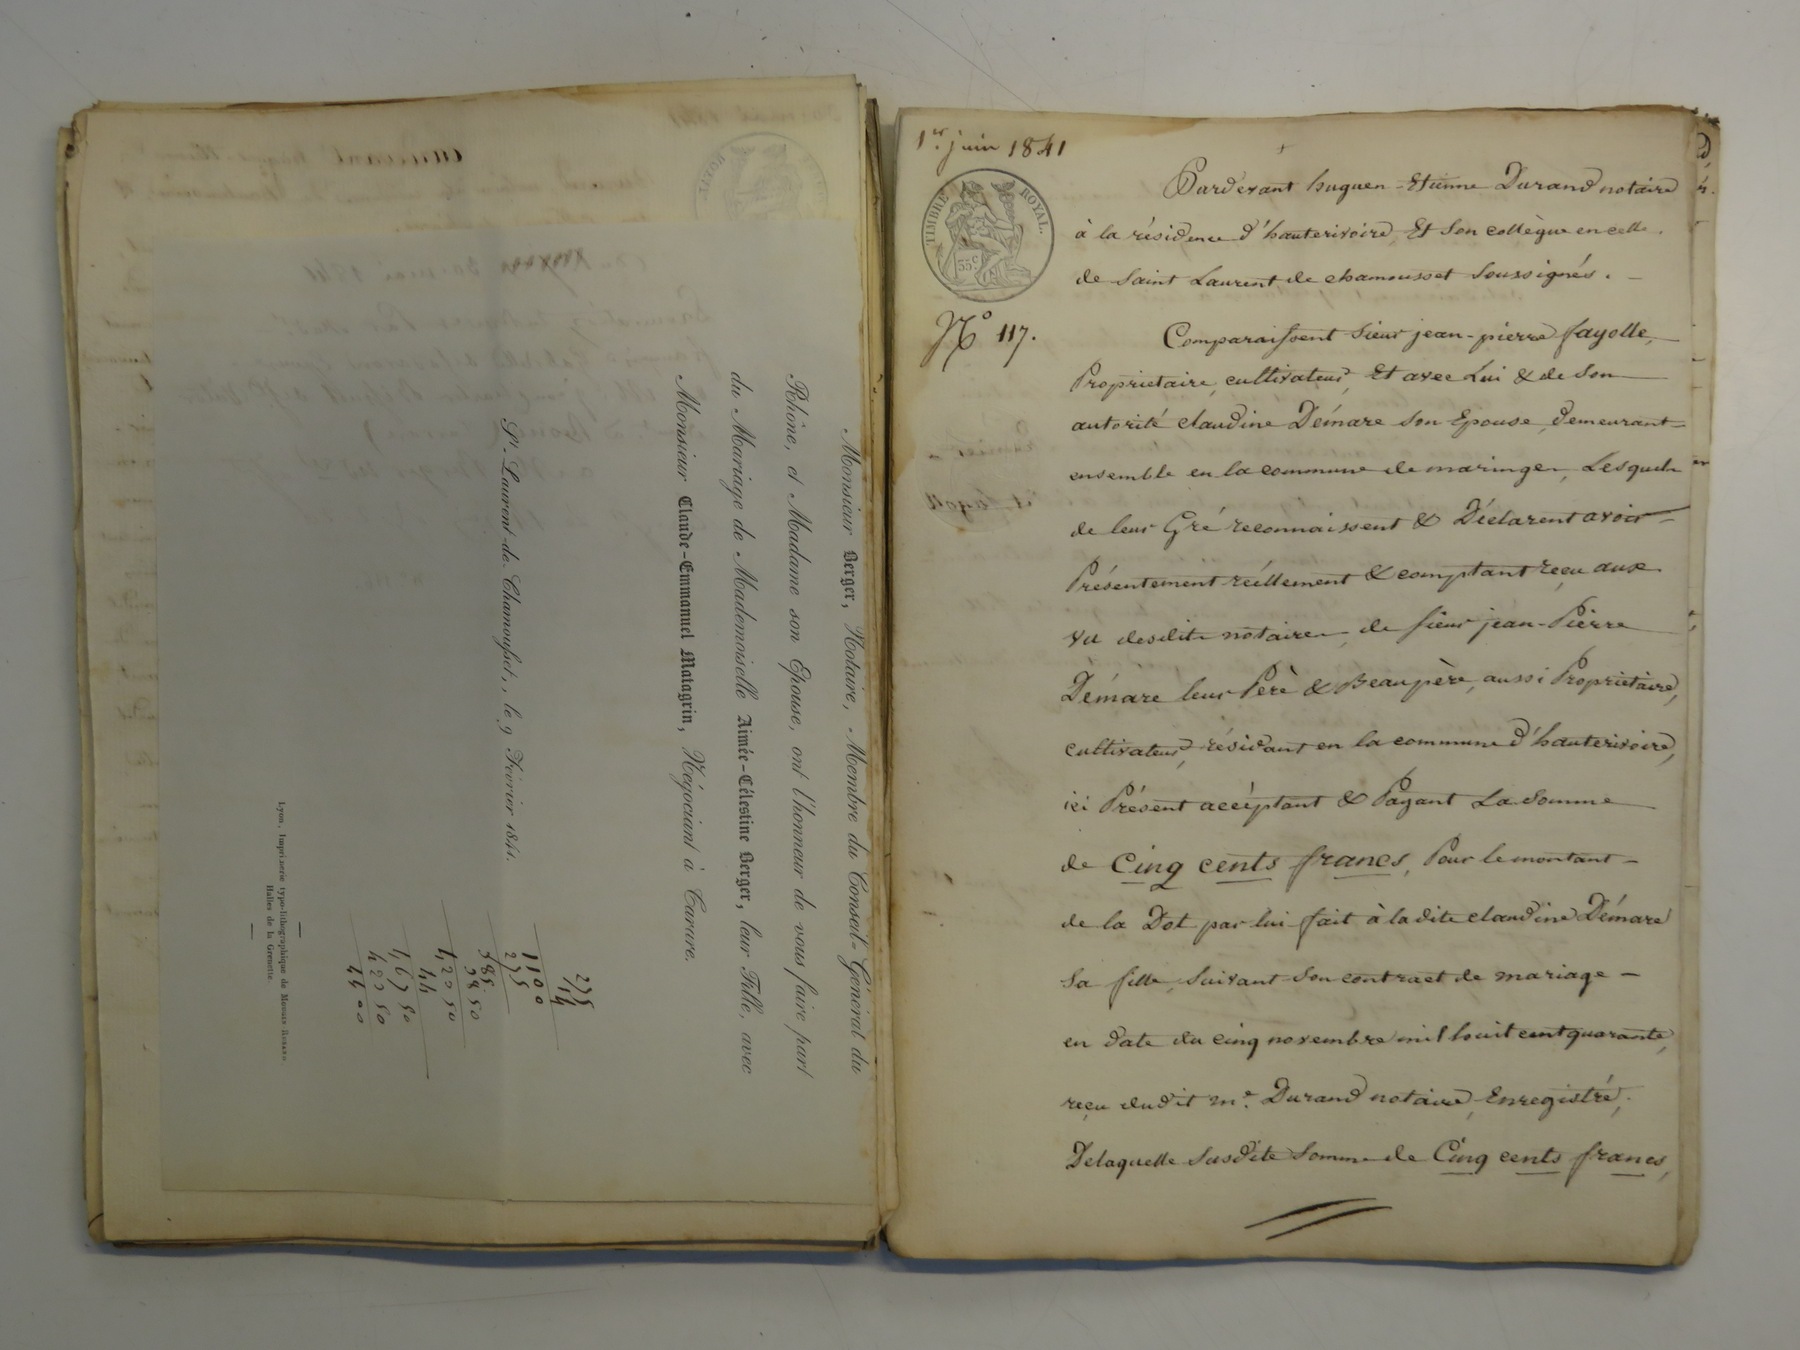 Monsieur Berger, Notaire, Membre du Conseil-Général du
Rhône, et Madame son Epouse, ont l'honneur de vous faire part
du Mariage de Mademoiselle Aimée-Célestine Berger, leur Fille, avec
Monsieur Claude-Emmanuel Matagrin, Négociant à Tarare.
St. Laurent-de-Chamousset, le 9 Février 1841.
Lyon, Imprimerie typo-lithographique de Mougin Rusand
Halles de la Grenette.
275
14
1100
275
385
38 50
42 3 50
44
46 7 50
42 3 50
44 00
1er. juin 1841
TIMBRE ROYAL.
35c
No 117.
Pardevant hugues-Etienne Durand notaire
à la résidence d'hauterivoire, Et son collègue en celle
de Saint Laurent de chamousset soussignés.
Comparaissent sieur jean-pierre fayolle,
Proprietaire, cultivateur, Et avec Lui & de Son
autorité claudine Démare son Epouse, demeurant
ensemble en la commune de maringes, Lesquels
de leur Gré reconnaissent & Déclarent avoir
Présentement réellement & comptant reçu aux
vu desdits notaires, de sieur jean-Pierre
Démare leur Père & Beaupère, aussi Proprietaire,
cultivateur, résidant en la commune d'hauterivoire,
ici Présent accéptant & Payant La Somme
de Cinq cents francs, Pour le montant
de la Dot par lui fait à ladite claudine Démare
sa fille, suivant son contract de mariage
en date du cinq novembre mil huit cent quarante,
reçu dudit me. Durand notaire, Enregistré,
Delaquelle susdite somme de Cinq cents francs,